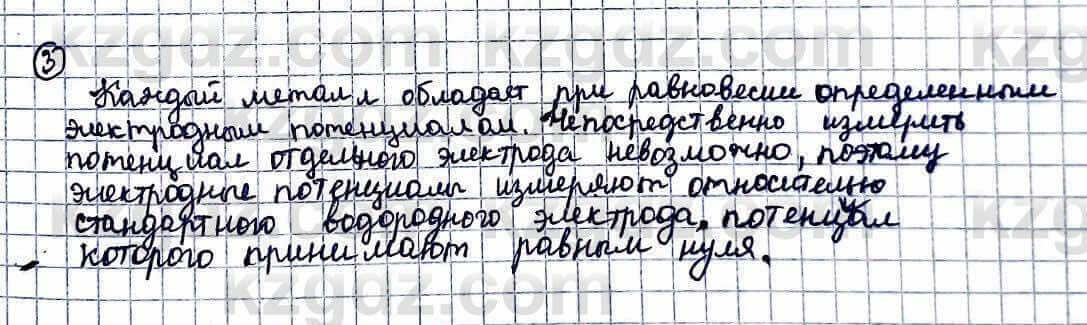 ③
Каждый металл обладает при равновесии определенным
электродным потенциалом. Непосредственно измерить
потенциал отдельного электрода невозможно, поэтому
электродные потенциалы измеряют относительно
стандартного водородного электрода, потенциал
которого принимают равным нуля.
kzgdz.com